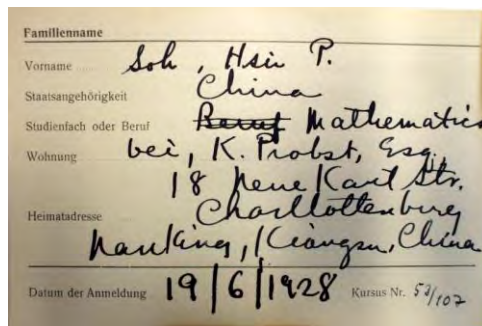 Familienname
Vorname Soh, Hsin P.
Staatsangehörigkeit China
Studienfach oder Beruf Beruf Mathematics
Wohnung bei, K. Probst, Esq.
18 Neue Kant Str.
Charllottenberg
Heimatadresse
Nanking, Kiangsu, China
Datum der Anmeldung 19/6/1928 Kursus Nr. 53/107